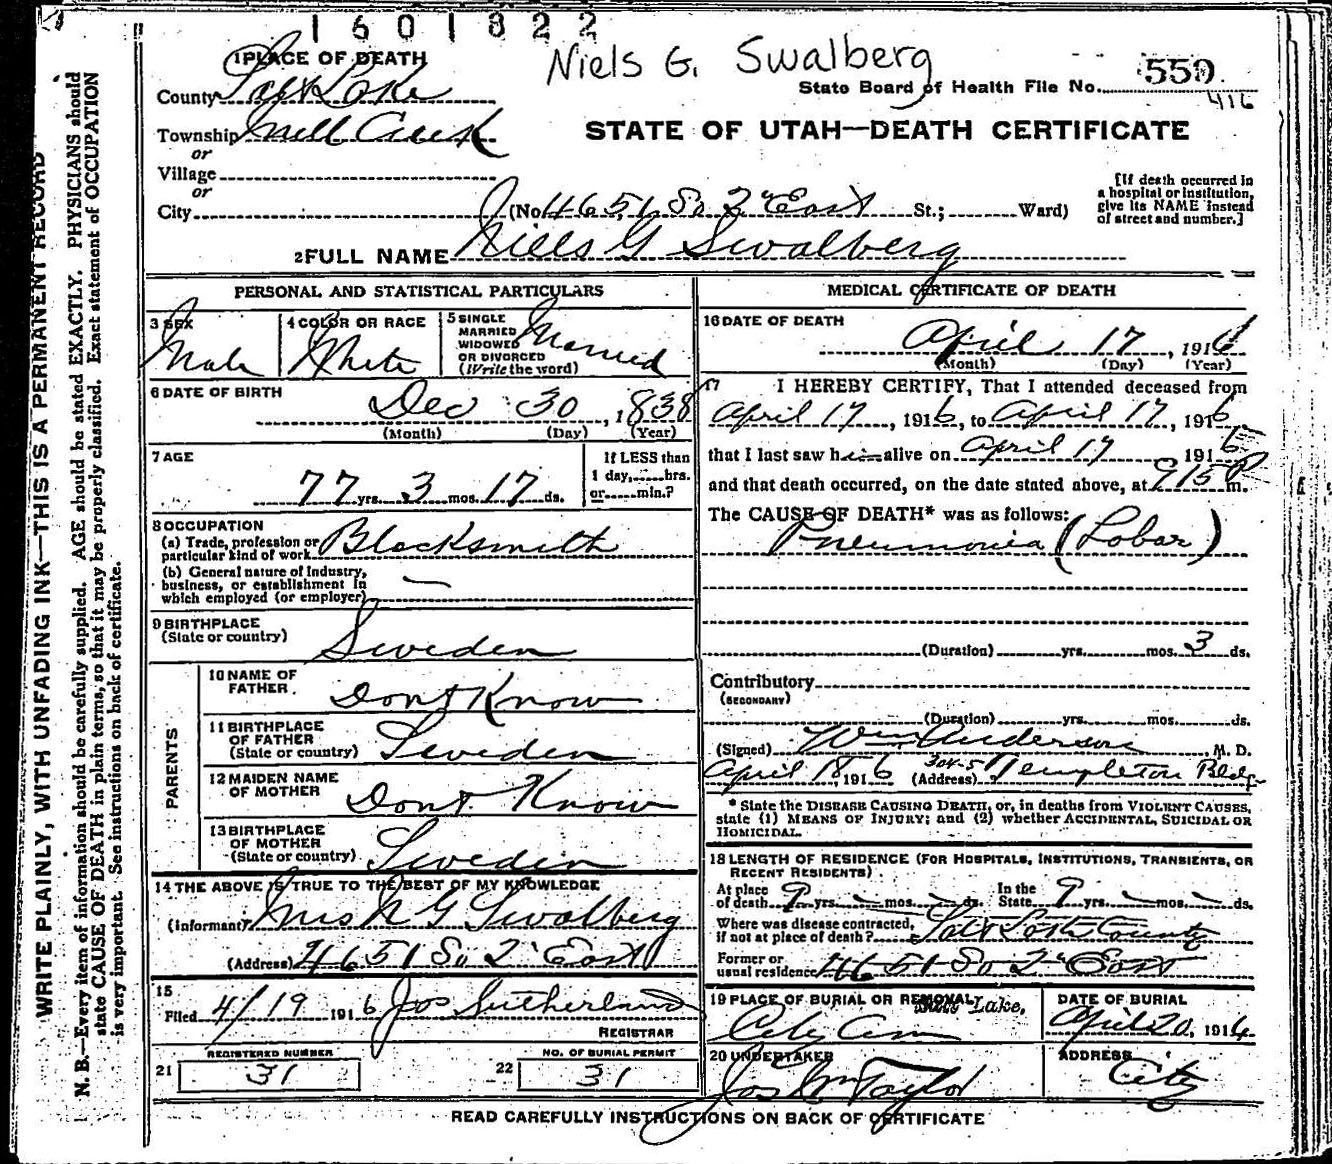 1601822
Niels G. Swalberg
1 PLACE OF DEATH
State Board of Health File No. 559
416
County Salt Lake
Township Mill Creek
STATE OF UTAH—DEATH CERTIFICATE
or
Village
or
City (No. 4651 So 2" East St.; Ward)
[If death occurred in
a hospital or institution,
give its NAME instead
of street and number.]
2 FULL NAME Niels G Swalberg
PERSONAL AND STATISTICAL PARTICULARS
3 SEX Male
4 COLOR OR RACE White
5 SINGLE
MARRIED
WIDOWED
OR DIVORCED
(Write the word) Married
6 DATE OF BIRTH Dec 30, 1838
(Month) (Day) (Year)
7 AGE 77 yrs. 3 mos. 17 ds.
If LESS than
1 day, hrs.
or min.?
8 OCCUPATION
(a) Trade, profession or
particular kind of work Blacksmith
(b) General nature of Industry,
business, or establishment in
which employed (or employer) —
9 BIRTHPLACE
(State or country) Sweden
PARENTS
10 NAME OF
FATHER Dont Know
11 BIRTHPLACE
OF FATHER
(State or country) Sweden
12 MAIDEN NAME
OF MOTHER Dont Know
13 BIRTHPLACE
OF MOTHER
(State or country) Sweden
14 THE ABOVE IS TRUE TO THE BEST OF MY KNOWLEDGE
(Informant) Mrs N G Swalberg
(Address) 4651 So 2" East
15
Filed 4/19 1916 Jos Sutherland
REGISTRAR
REGISTERED NUMBER
21 31
NO. OF BURIAL PERMIT
22 31
MEDICAL CERTIFICATE OF DEATH
16 DATE OF DEATH
April 17, 1916
(Month) (Day) (Year)
17 I HEREBY CERTIFY, That I attended deceased from
April 17, 1916, to April 17, 1916
that I last saw him alive on April 17 1916
and that death occurred, on the date stated above, at 915 P m.
The CAUSE OF DEATH* was as follows:
Pneumonia (Lobar)
(Duration) yrs. mos. 3 ds.
Contributory
(SECONDARY)
(Duration) yrs. mos. ds.
(Signed) Wm Anderson, M. D.
April 18 1916 (Address) 304-5 Templeton Bldg
* State the DISEASE CAUSING DEATH, or, in deaths from VIOLENT CAUSES,
state (1) MEANS OF INJURY; and (2) whether ACCIDENTAL, SUICIDAL OR
HOMICIDAL.
18 LENGTH OF RESIDENCE (FOR HOSPITALS, INSTITUTIONS, TRANSIENTS, OR
RECENT RESIDENTS)
At place
of death 9 yrs. — mos. — ds.
In the
State 9 yrs. — mos. — ds.
Where was disease contracted,
if not at place of death? Salt Lake County
Former or
usual residence 4651 So 2" East
19 PLACE OF BURIAL OR REMOVAL
Salt Lake,
City Cem
DATE OF BURIAL
April 20, 1916
20 UNDERTAKER
Jos Wm Taylor
ADDRESS
City
READ CAREFULLY INSTRUCTIONS ON BACK OF CERTIFICATE
WRITE PLAINLY, WITH UNFADING INK—THIS IS A PERMANENT RECORD
N. B.—Every item of information should be carefully supplied. AGE should be stated EXACTLY. PHYSICIANS should
state CAUSE OF DEATH in plain terms, so that it may be properly classified. Exact statement of OCCUPATION
is very important. See instructions on back of certificate.